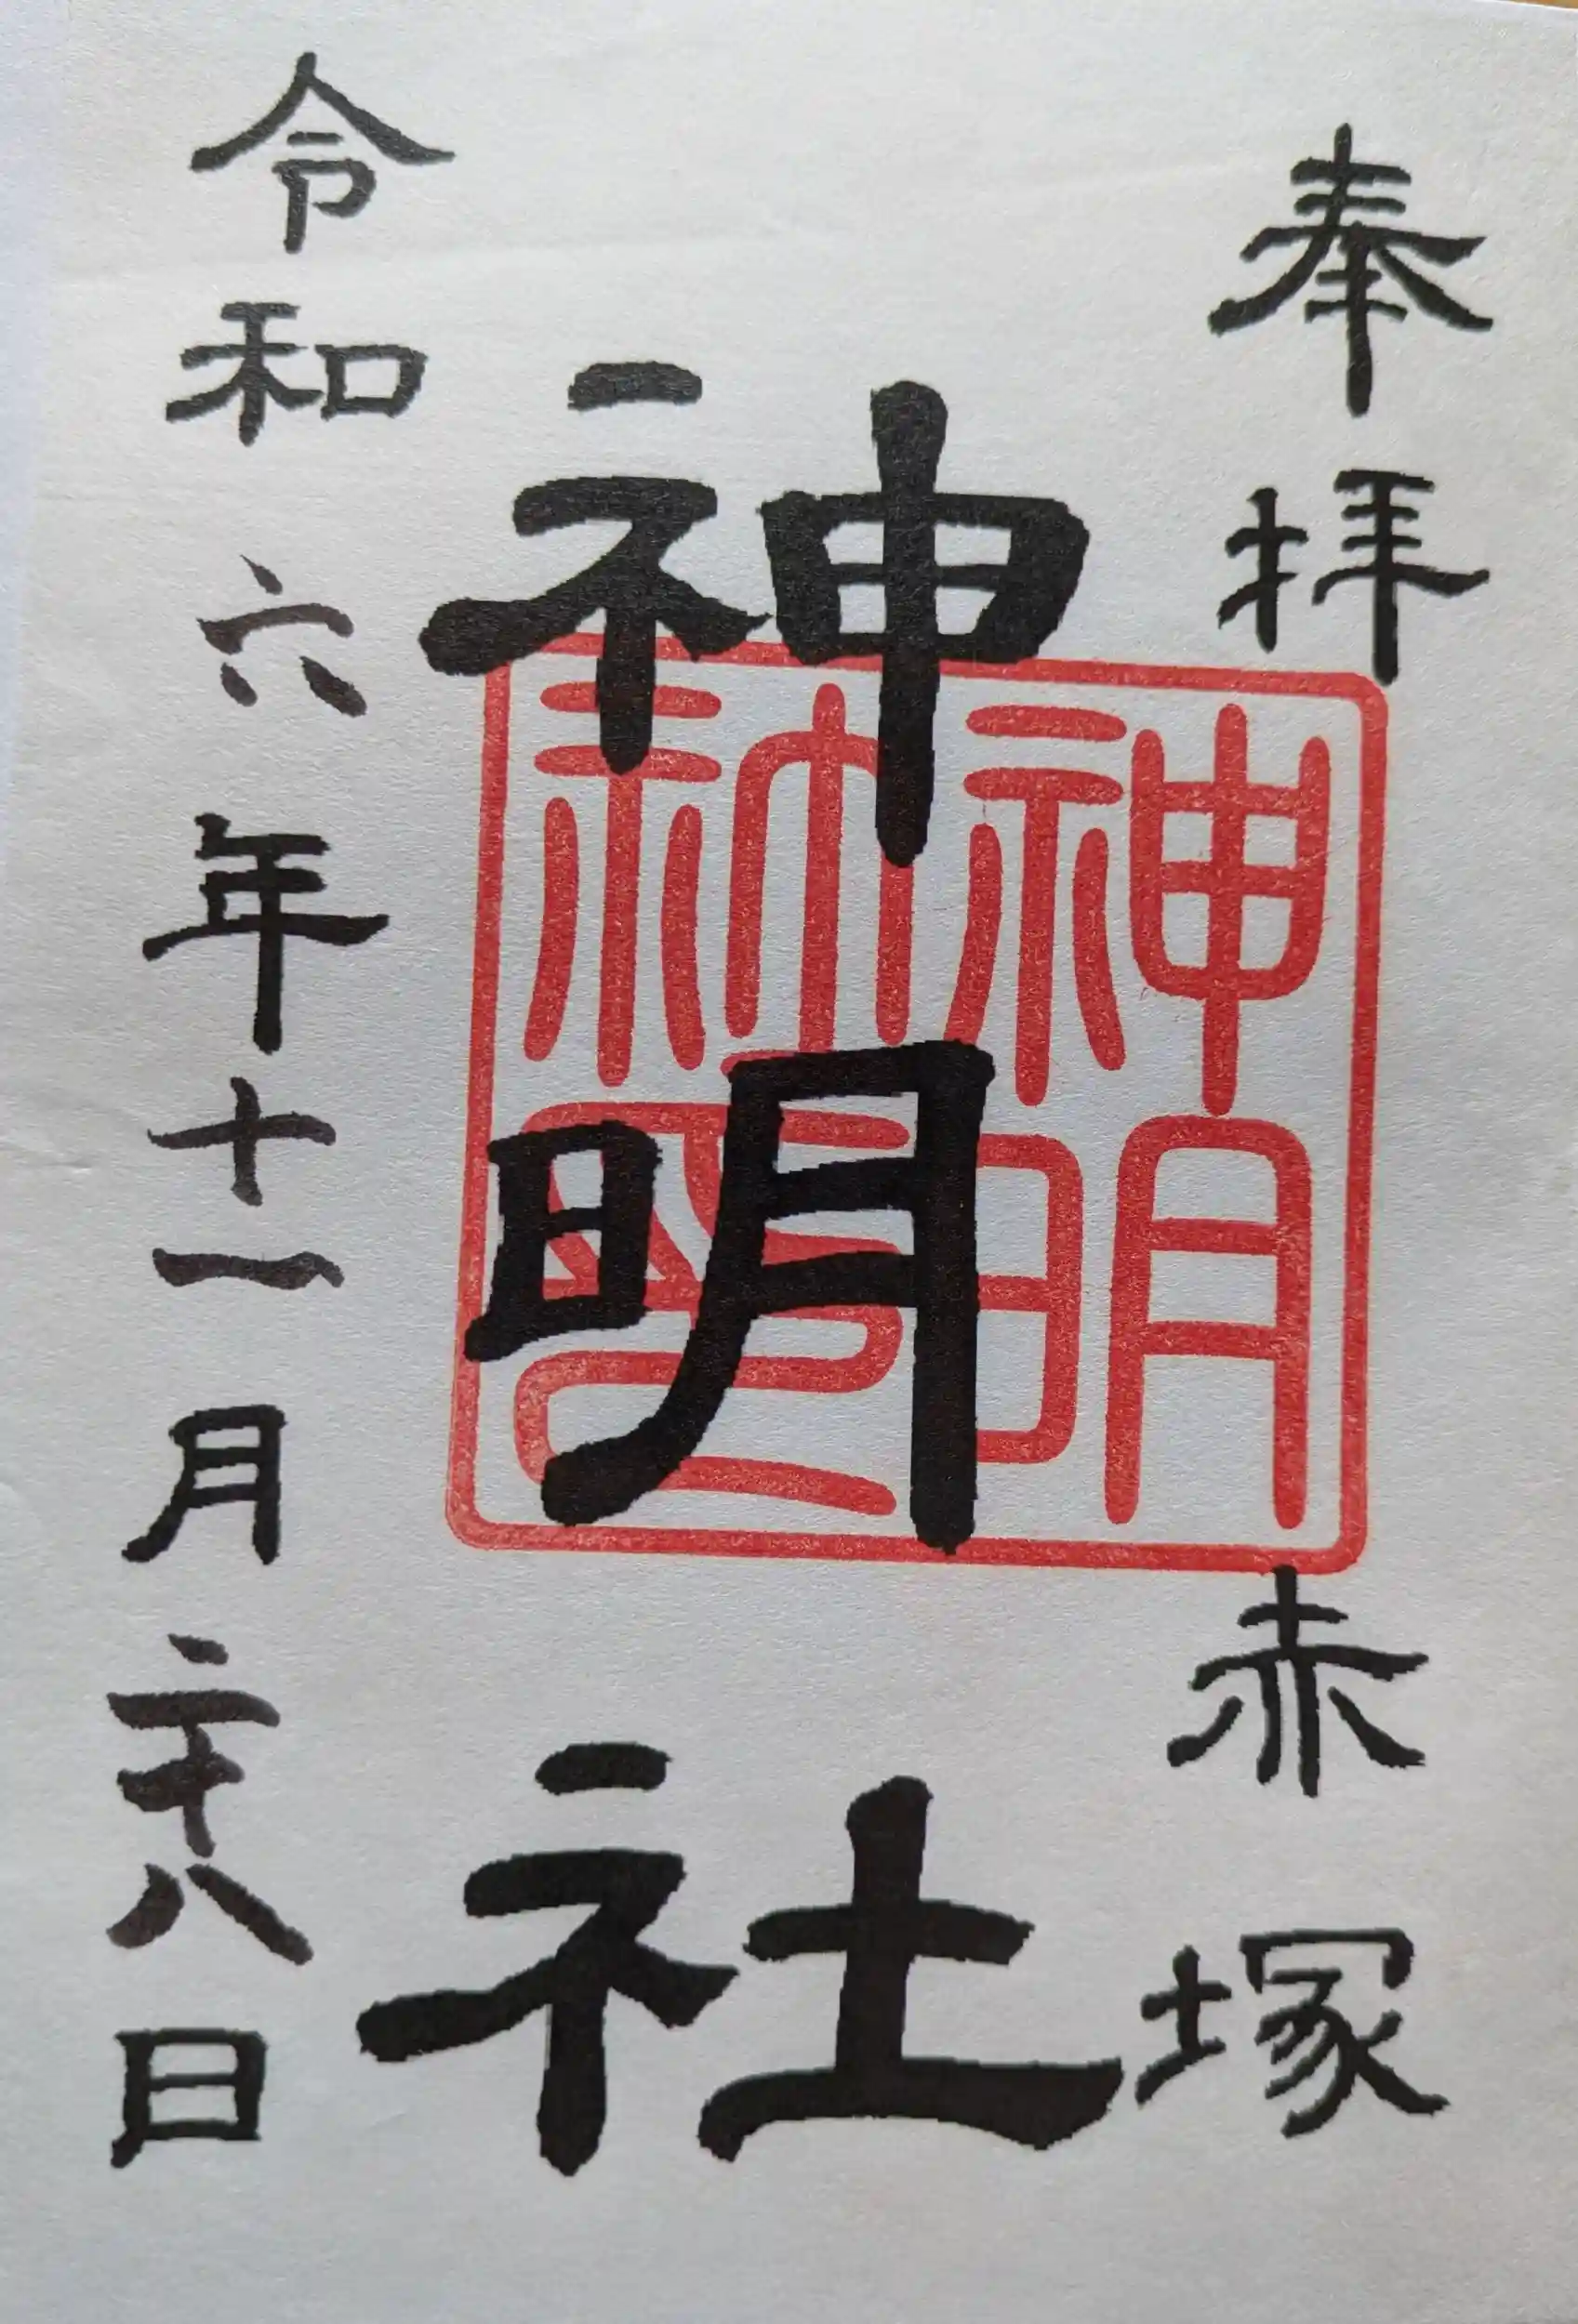 奉拝
赤塚
神明社
神明
社印
令和六年十一月二十八日